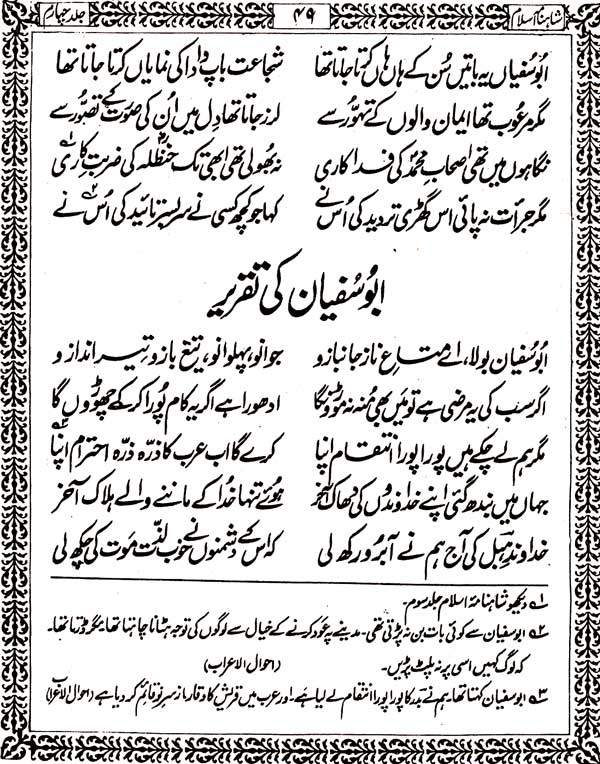 شاہنامہ اسلام ۴۹ جلد چہارم
ابوسفیاں یہ باتیں سُن کے ہاں ہاں کرتا جاتا تھا شجاعت باپ دادا کی نمایاں کرتا جاتا تھا
مگر مرعوب تھا ایمان والوں کے تہوّر سے لرز جاتا تھا دل میں اُن کی صورت کے تصوّر سے
نگاہوں میں تھی اصحابِ محمدؐ کی فداکاری نہ بھولی تھی ابھی تک حنظلہؓ کی ضربتِ کاری ۱؎
مگر جرأت نہ پائی اس گھڑی تردید کی اُس نے کہا جو کچھ کسی نے سربسر تائید کی اُس نے ۲؎
ابوُسفیان کی تقریر
ابوُسفیان بولا، اے متاعِ ناز جانبازو جوانو، پہلوانو، تیغ بازو تیر اندازو
اگر سب کی یہ مرضی ہے تو میں بھی مُنہ نہ موڑوں گا ادھورا ہے اگر یہ کام پُورا کر کے چھوڑوں گا
مگر ہم لے چکے ہیں پورا پورا انتقام اپنا کرے گا اب عرب کا ذرّہ ذرّہ احترام اپنا ۳؎
جہاں میں بندھ گئی اپنے خداوندوں کی دھاک آخر ہوئے تنہا خدا کے ماننے والے ہلاک آخر
خداوندِ ہبل کی آج ہم نے آبرو رکھ لی کہ اس کے دشمنوں نے خوب لذّت موت کی چکھ لی
۱؎ دیکھو شاہنامۂ اسلام جلد سوم۔
۲؎ ابوسفیان سے کوئی بات بن نہ پڑتی تھی۔ مدینے پر عود کرنے کے خیال سے لوگوں کی توجہ ہٹانا چاہتا تھا۔ مگر ڈرتا تھا۔
کہ لوگ کہیں اسی پر نہ پلٹ پڑیں۔ (احوال الاعراب)
۳؎ ابوسفیان کہتا تھا۔ ہم نے بدر کا پورا پورا انتقام لے لیا ہے۔ اور عرب میں قریش کا وقار باز سرِ نو قائم کر دیا ہے (احوال الاعراب)